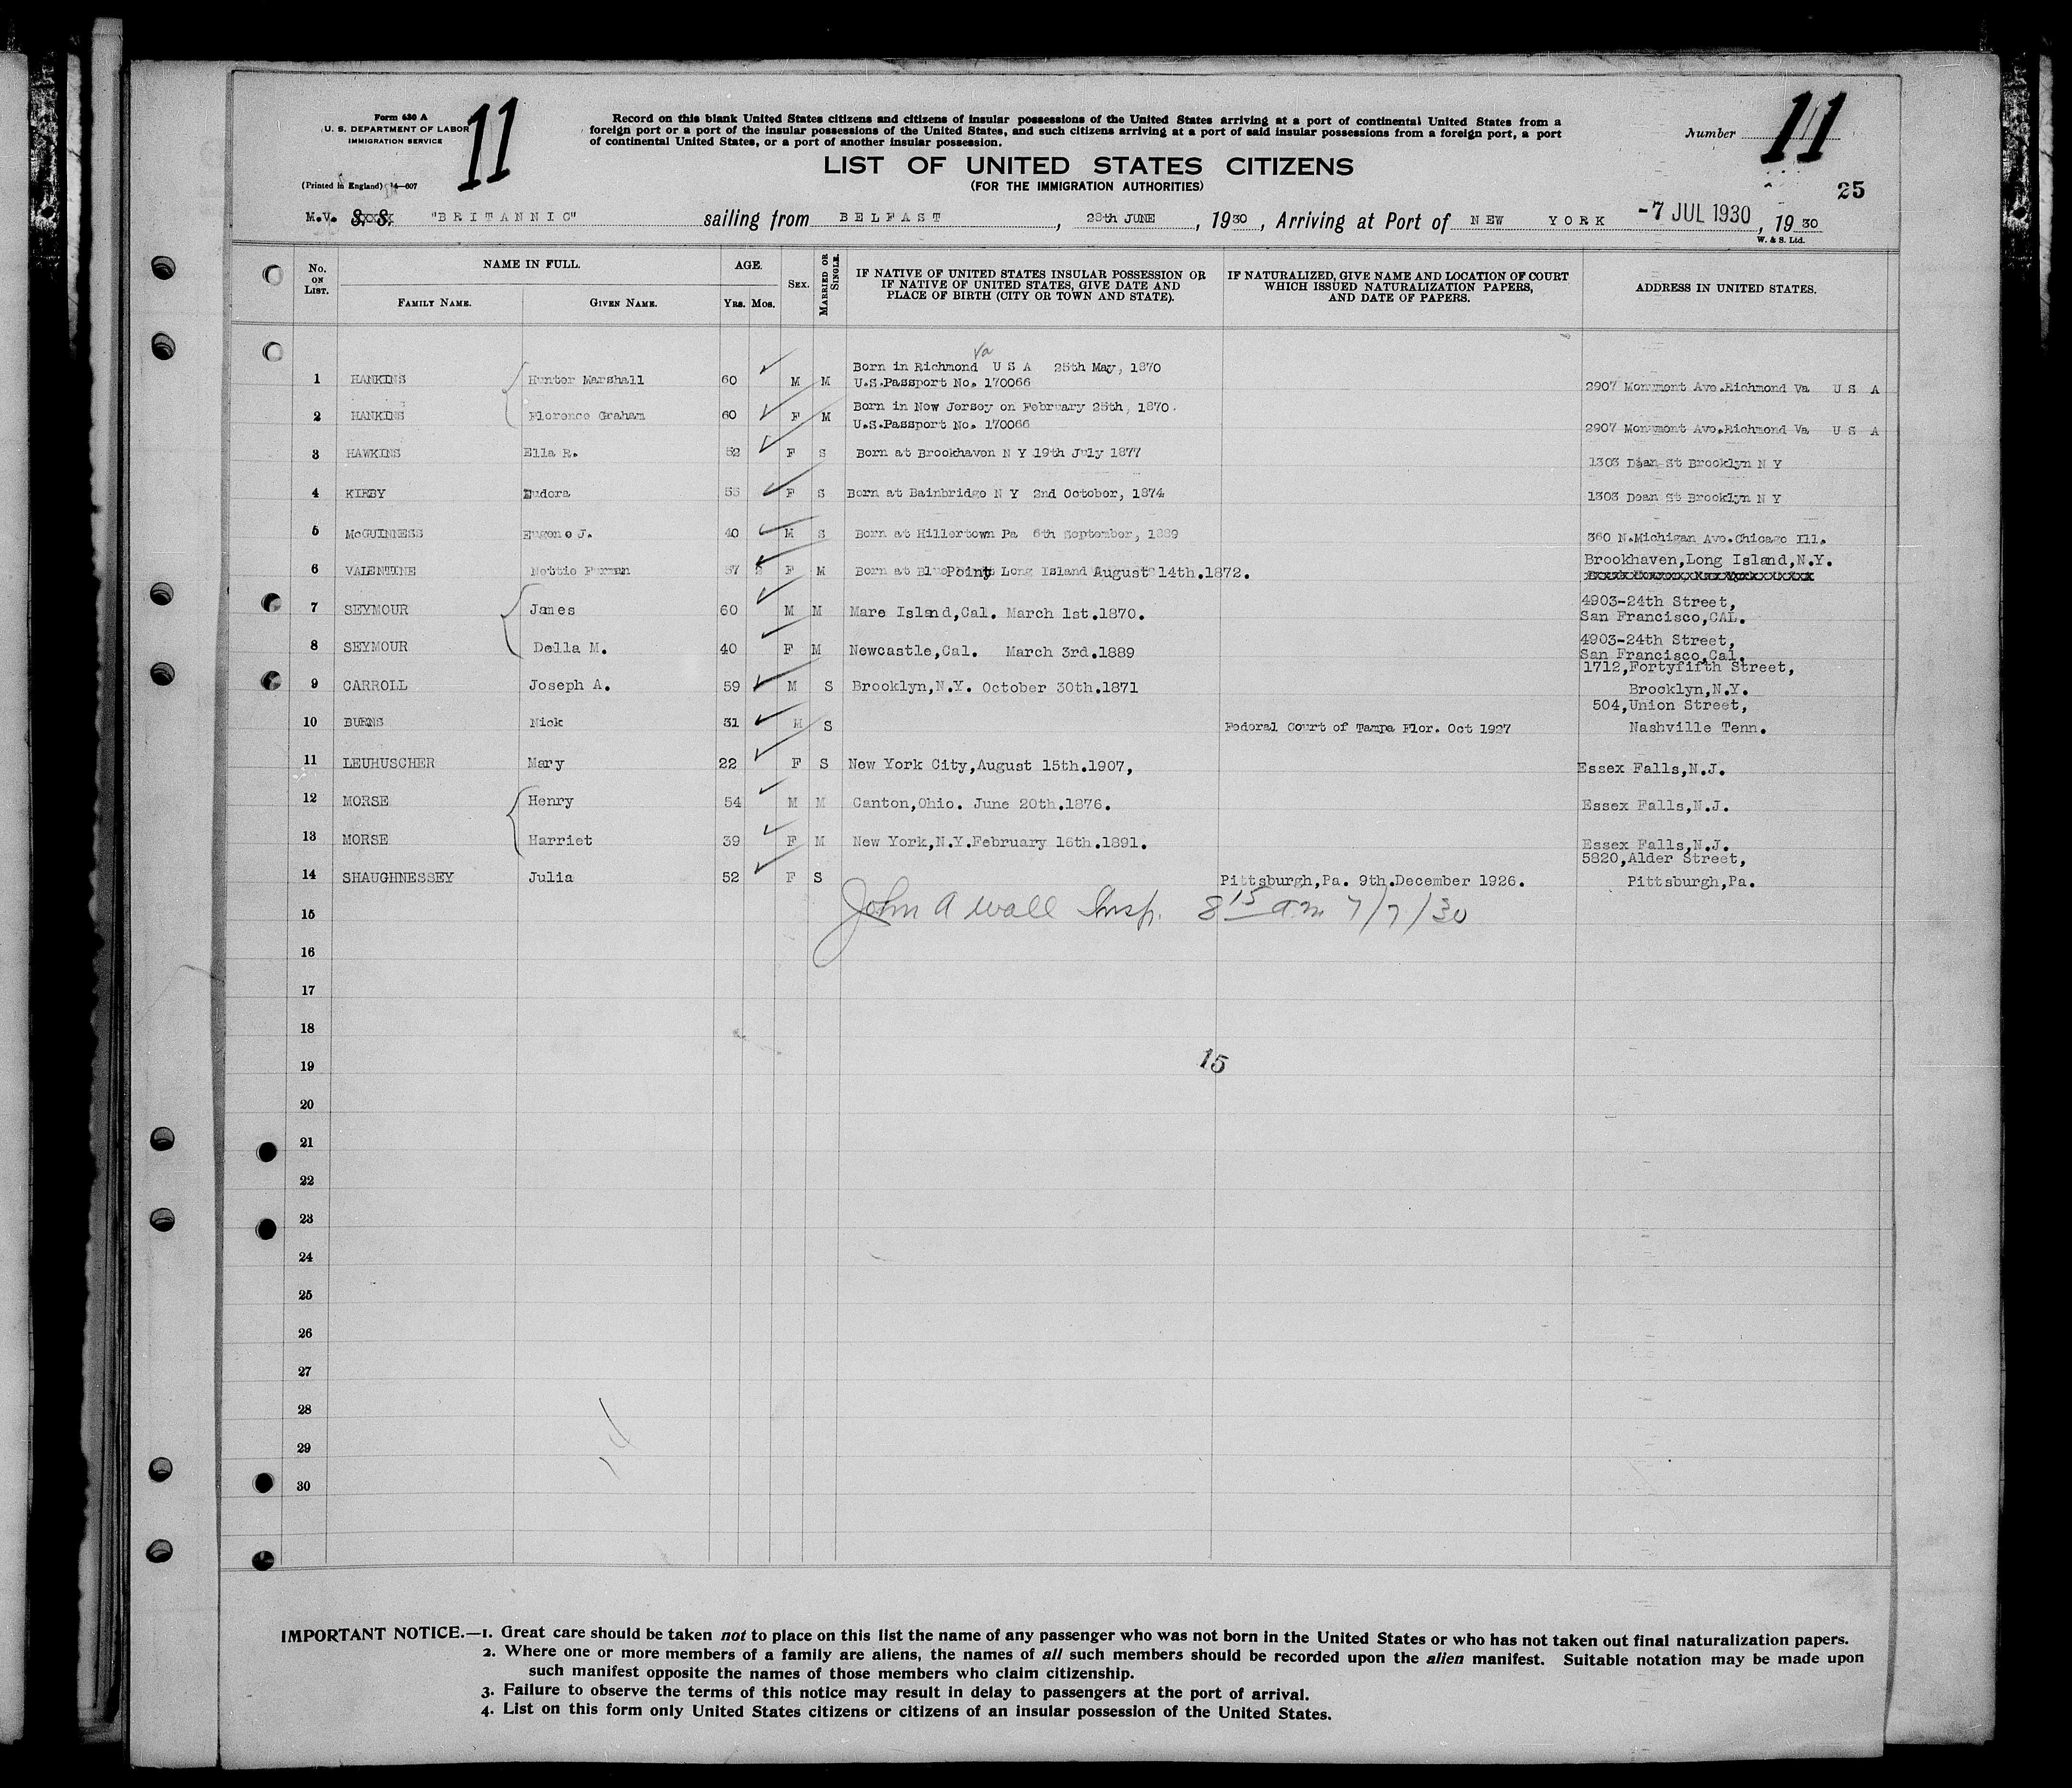 Form 630 A
U. S. DEPARTMENT OF LABOR
IMMIGRATION SERVICE
(Printed in England) 14—607
11
Record on this blank United States citizens and citizens of insular possessions of the United States arriving at a port of continental United States from a
foreign port or a port of the insular possessions of the United States, and such citizens arriving at a port of said insular possessions from a foreign port, a port
of continental United States, or a port of another insular possession.
LIST OF UNITED STATES CITIZENS
(FOR THE IMMIGRATION AUTHORITIES)
Number 11
25
M.V. S. S. "BRITANNIC" sailing from BELFAST, 28th JUNE, 1930, Arriving at Port of NEW YORK -7 JUL 1930, 1930
W. & S. Ltd.
No. ON LIST. NAME IN FULL. AGE. SEX. MARRIED OR SINGLE. IF NATIVE OF UNITED STATES INSULAR POSSESSION OR IF NATIVE OF UNITED STATES, GIVE DATE AND PLACE OF BIRTH (CITY OR TOWN AND STATE). IF NATURALIZED, GIVE NAME AND LOCATION OF COURT WHICH ISSUED NATURALIZATION PAPERS, AND DATE OF PAPERS. ADDRESS IN UNITED STATES.
FAMILY NAME. GIVEN NAME. Yrs. Mos.
Va
Born in Richmond U S A 25th May, 1870
1 HANKINS Hunter Marshall 60 M M U.S.Passport No. 170066 2907 Monument Ave.Richmond Va U S A
Born in New Jersey on February 25th, 1870.
2 HANKINS Florence Graham 60 F M U.S.Passport No. 170066 2907 Monument Ave.Richmond Va U S A
3 HAWKINS Ella R. 52 F S Born at Brookhaven N Y 19th July 1877 1303 Dean St Brooklyn N Y
4 KIRBY Eudora 55 F S Born at Bainbridge N Y 2nd October, 1874 1303 Dean St Brooklyn N Y
5 McGUINNESS Eugene J. 40 M S Born at Hillertown Pa 6th September, 1889 360 N.Michigan Ave.Chicago Ill.
6 VALENTINE Nettie Furman 57 F M Born at Blue Point Long Island August 14th.1872. Brookhaven,Long Island,N.Y.
7 SEYMOUR James 60 M M Mare Island,Cal. March 1st.1870. 4903-24th Street,
San Francisco,CAL.
8 SEYMOUR Della M. 40 F M Newcastle,Cal. March 3rd.1889 4903-24th Street,
San Francisco,Cal.
9 CARROLL Joseph A. 59 M S Brooklyn,N.Y. October 30th.1871 1712,Fortyfifth Street,
Brooklyn,N.Y.
504,Union Street,
10 BURNS Nick 31 M S Federal Court of Tampa Flor. Oct 1927 Nashville Tenn.
11 LEUHUSCHER Mary 22 F S New York City,August 15th.1907, Essex Falls,N.J.
12 MORSE Henry 54 M M Canton,Ohio. June 20th.1876. Essex Falls,N.J.
13 MORSE Harriet 39 F M New York,N.Y.February 16th.1891. Essex Falls,N.J.
5820,Alder Street,
14 SHAUGHNESSEY Julia 52 F S Pittsburgh,Pa. 9th.December 1926. Pittsburgh,Pa.
15 John A Wall Insp. 8 15 am 7/7/30
16
17
18
19 15
20
21
22
23
24
25
26
27
28
29
30
IMPORTANT NOTICE.—1. Great care should be taken not to place on this list the name of any passenger who was not born in the United States or who has not taken out final naturalization papers.
2. Where one or more members of a family are aliens, the names of all such members should be recorded upon the alien manifest. Suitable notation may be made upon
such manifest opposite the names of those members who claim citizenship.
3. Failure to observe the terms of this notice may result in delay to passengers at the port of arrival.
4. List on this form only United States citizens or citizens of an insular possession of the United States.